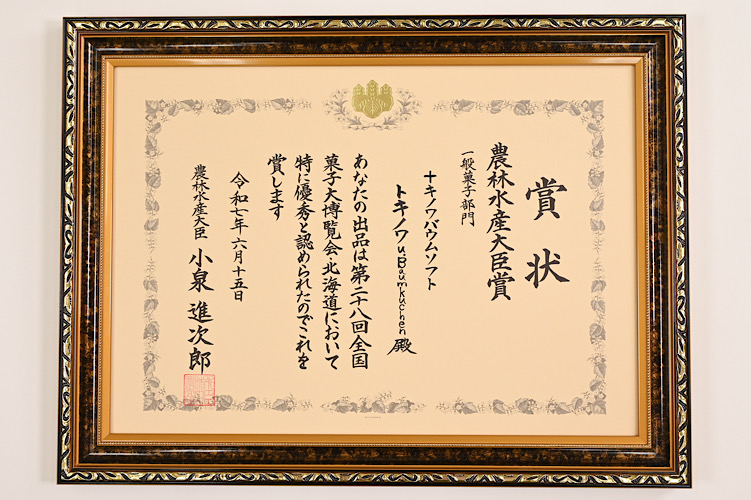 賞状
農林水産大臣賞
一般菓子部門
トキノワバウムソフト
トキノワu.Baumkuchen 殿
あなたの出品は第二十八回全国
菓子大博覧会・北海道において
特に優秀と認められたのでこれを
賞します
令和七年六月十五日
農林水産大臣 小泉進次郎